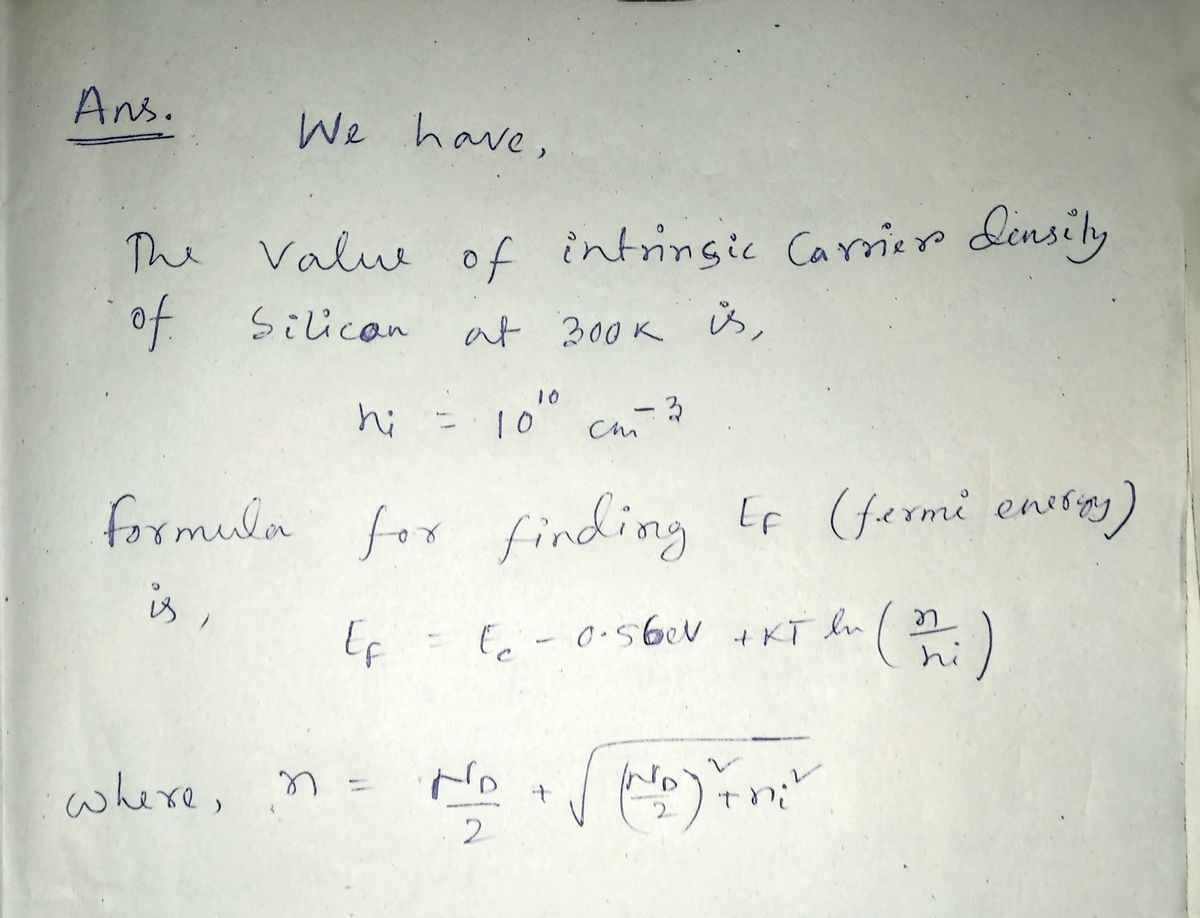 Ans.
We have,
The value of intrinsic Carriers density
of Silicon at 300K is,
ni = 10¹⁰ cm⁻³
formula for finding EF (fermi energy)
is,
EF = Ec - 0.56eV + KT ln (n/ni)
where, n = ND/2 + √((ND/2)² + ni²)